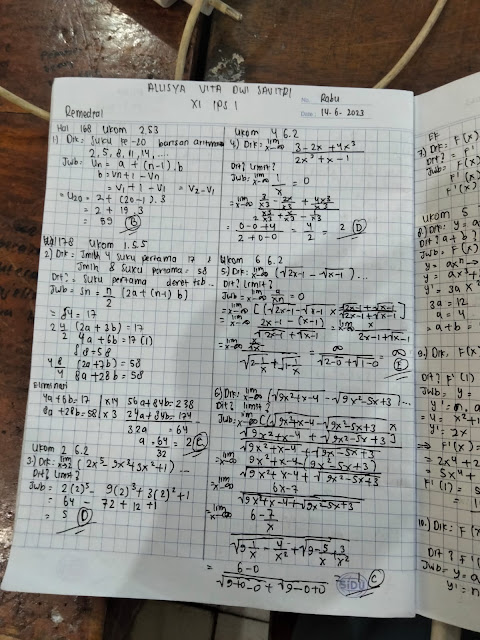 ALLISYA VITA DWI SAVITRI
XI IPS 1
No. Rabu
Date. 14-6-2023
Remedial
Hal 168 Ukom 2.5.3
1) Dik: Suku ke-20 barisan aritmatika
2, 5, 8, 11, 14, ....
Jwb: Un = a + (n-1).b
b = Un+1 - Un
= U1+1 - U1 = U2-U1
= U20 = 2 + (20-1).3
= 2 + 19.3
= 59 (B)
Hal 178 Ukom 1.5.5
2) Dik: Jmlh 4 suku pertama 17 &
Jmlh 8 suku pertama = 58
Dit?: Suku pertama deret tsb..
Jwb: Sn = n/2 (2a + (n-1) b)
= S4 = 17
4/2 (2a + 3b) = 17
4a + 6b = 17 (1)
S8 = 58
8/2 (2a + 7b) = 58
8a + 28b = 58
Eliminasi
4a + 6b = 17 | x14 56a + 84b = 238
8a + 28b = 58 | x3 24a + 84b = 174
32a = 64
a = 64/32 = 2 (E)
Ukom 2 6.2
3.) Dik: lim x→2 (2x⁵ - 9x² + 3x² + 1) ...
Dit? Limit?
Jwb = 2(2)⁵ - 9(2)³ + 3(2)² + 1
= 64 - 72 + 12 + 1
= 5 (D)
Ukom 4 6.2
4) Dik: lim x→∞ (3 - 2x + 4x³)/(2x³ + x - 1)
Dit? Limit?
Jwb: lim x→∞ 1/x = 0
= lim x→∞ (3/x³ - 2x/x³ + 4x³/x³)/(2x³/x³ + x/x³ - 1/x³)
= (0-0+4)/(2+0-0) = 4/2 = 2 (D)
Ukom 6 6.2
5) Dik: lim x→∞ (√2x-1 - √x-1) ...
Dit? Limit?
Jwb = lim x→∞ 1/x = 0
= lim x→∞ [(√2x-1 - √x-1 x (√2x-1 + √x-1)/(√2x-1 + √x-1)]
= lim x→∞ (2x-1 - (x-1))/(√2x-1 + √x-1) = lim x→∞ x/(√2x-1 + √x-1)
= ∞/(√2-0 + √1-0) = ∞ (E)
6) Dik: lim x→∞ (√9x²+x-4 - √9x²-5x+3) ...
Dit? Limit?
Jwb: lim x→∞ (√9x²+x-4 - √9x²-5x+3 x
(√9x²+x-4 + √9x²-5x+3)
√9x²+x-4 + √9x²-5x+3
= lim x→∞ (9x²+x-4 - (9x²-5x+3))/(√9x²+x-4 + √9x²-5x+3)
= lim x→∞ (6x-7)/(√9x²+x-4 + √9x²-5x+3)
= lim x→∞ 6 - 7/x
√9 1/x - 4/x² + √9-5/x + 3/x²
= (6-0)/(√9+0-0 + √9-0+0) = 1 (C)
SIDU
7) Dik: F(x)
Dit? = F'
Jwb: F(x)
F'(x)
F'(x)
Ukom 5
8.) Dik: y = a
Dit? a + b?
Jwb: F(x) =
y = axⁿ →
y' = 3a x²
3a = 12
a = 4
= a + b =
9.) Dik: F(x
Dit? F'(1)
Jwb: y =
y' = 2x
⇒ F'(x)
F'(1) =
10.) Dik: F
Dit? F'(
Jwb: y = a
y' = n